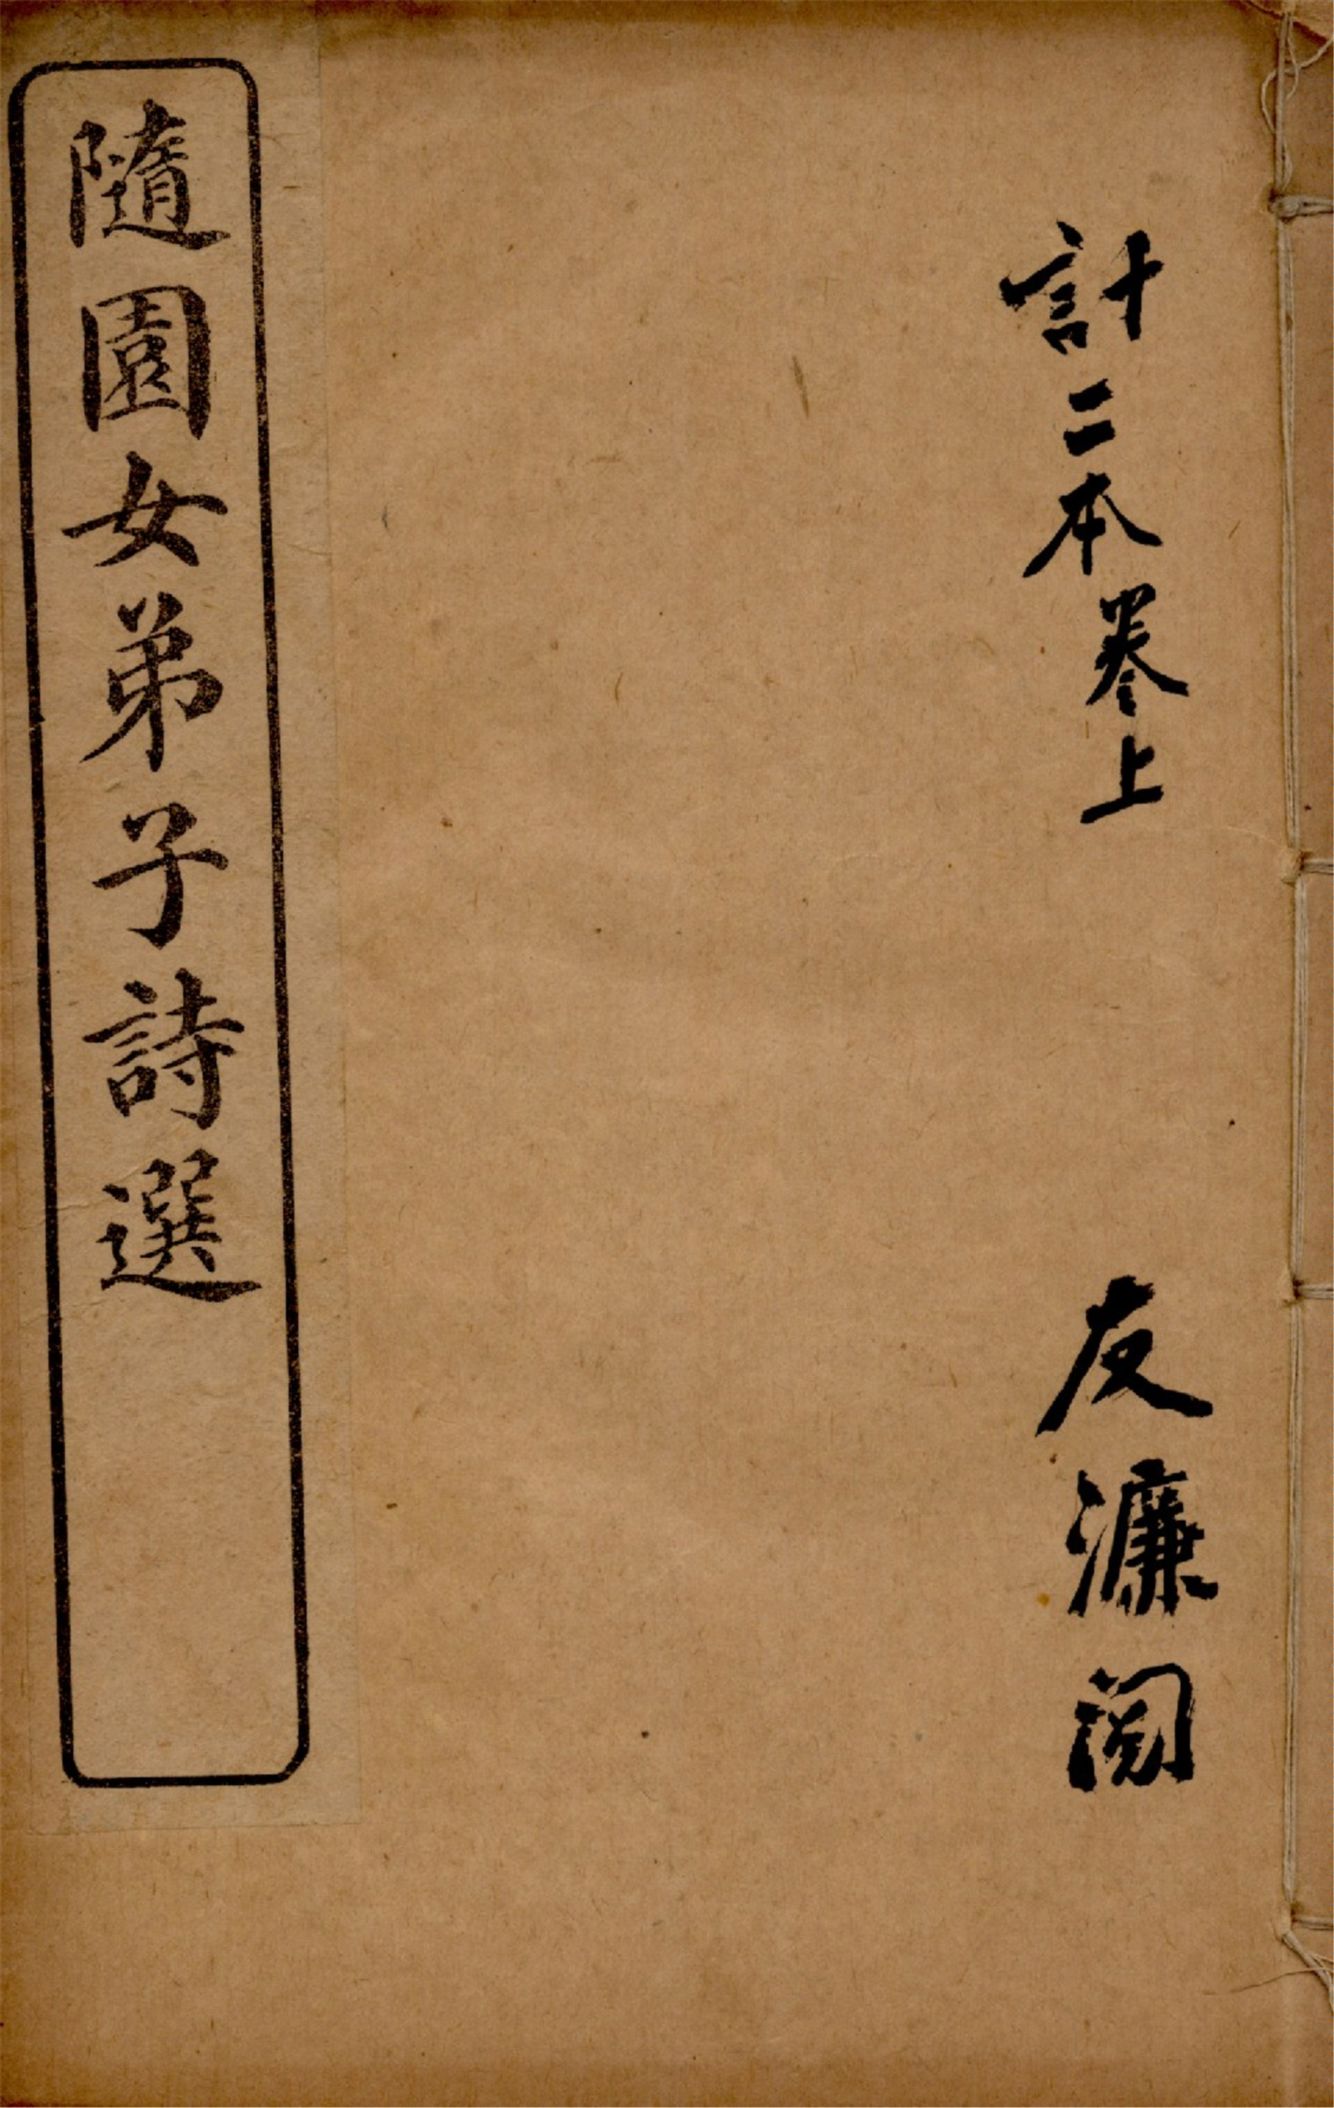 計二本卷上
友濂閱
隨園女弟子詩選